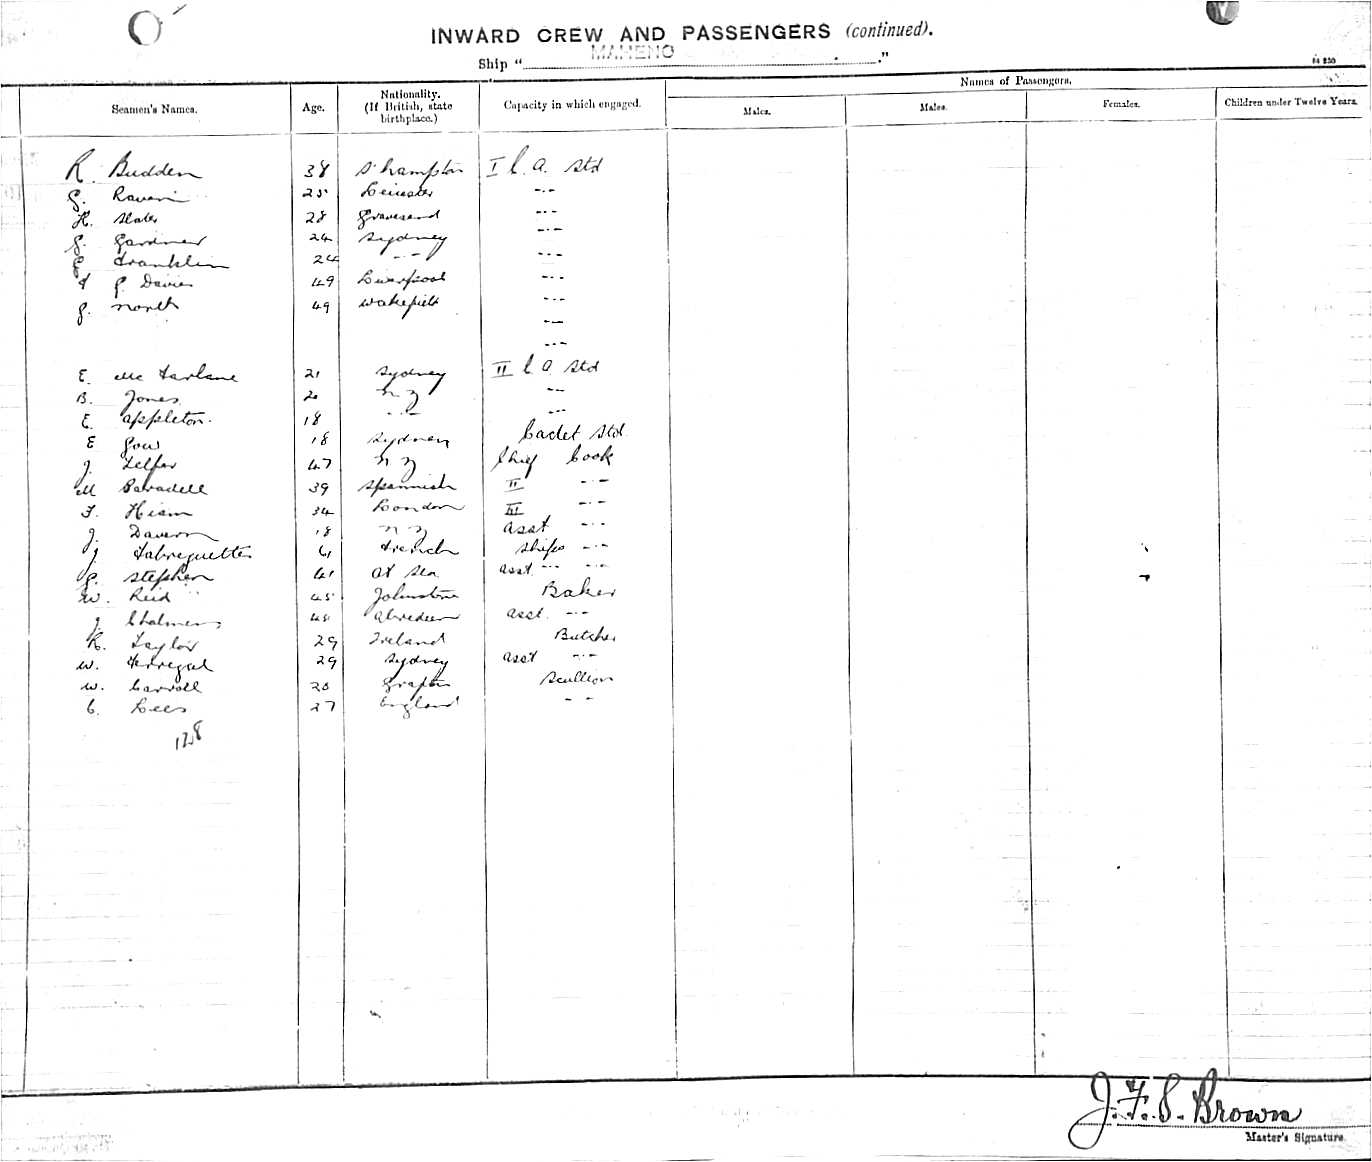 INWARD CREW AND PASSENGERS (continued).
Ship "MAHENO."
Names of Passengers.
Seamen's Names. Age. Nationality. (If British, state birthplace.) Capacity in which engaged. Males. Males. Females. Children under Twelve Years.
R. Budden 38 S'hampton I C. A. Std
G. 25 Leicester -·-
H. Slater 28 Gravesend -·-
G. Gardiner 24 Sydney -·-
G Franklin 24 -·- -·-
F G. Davies 49 Liverpool -·-
J. North 49 Wakefield -·-
-·-
-·-
E. McFarlane 21 Sydney II C A Std
B. Jones NZ -·-
E. Appleton. 18 -·- -·-
E Gow 18 Sydney Cadet Std
J. Telfer 47 NZ Chief Cook
M Paradell 39 Spannish II -·-
F. Hiam 34 London III -·-
J. Davern 18 NZ Asst -·-
J. Fabreguettes 61 French Ships -·-
G. Stephen 41 At Sea Asst. -·- -·-
W. Reid 45 Johnstone Baker
J. Chalmers 48 Aberdeen Asst. -·-
R. Taylor 29 Ireland Butcher
W. 29 Sydney Asst -·-
W. Carroll 28 Grafton Scullion
C. Lees 27 England -·-
128
J. F. S. Brown
Master's Signature.